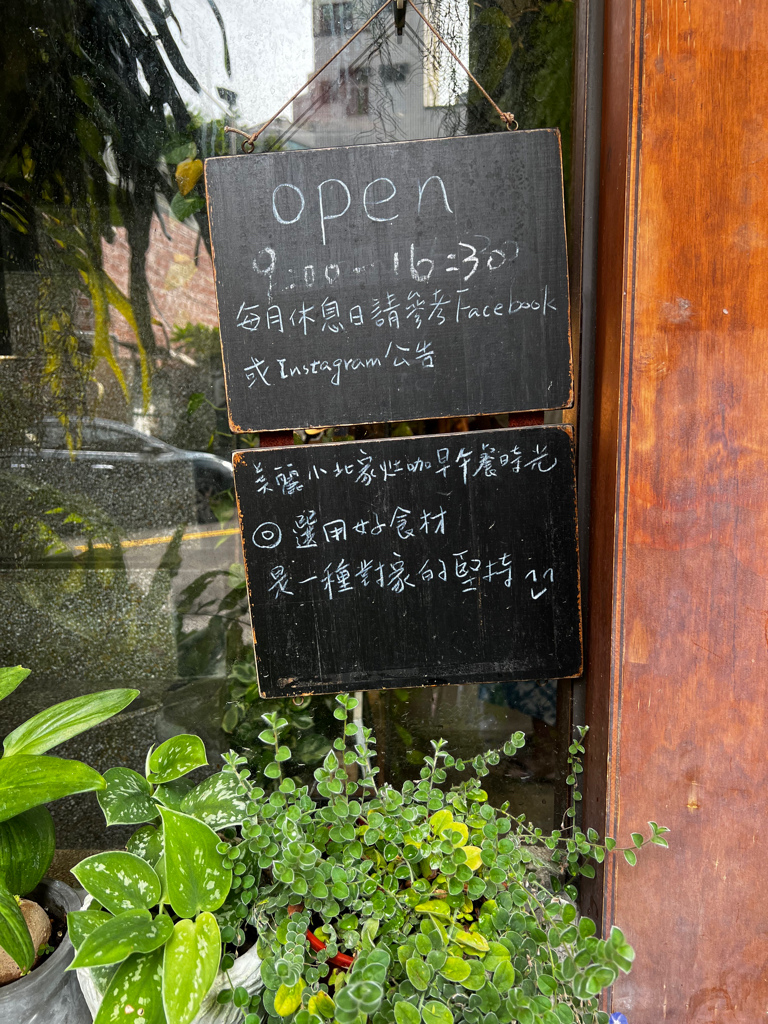 open
9:00-16:30
每月休息日請參考Facebook
或Instagram公告
美麗小北家灶咖早午餐時光
◎選用好食材
是一種對家的堅持